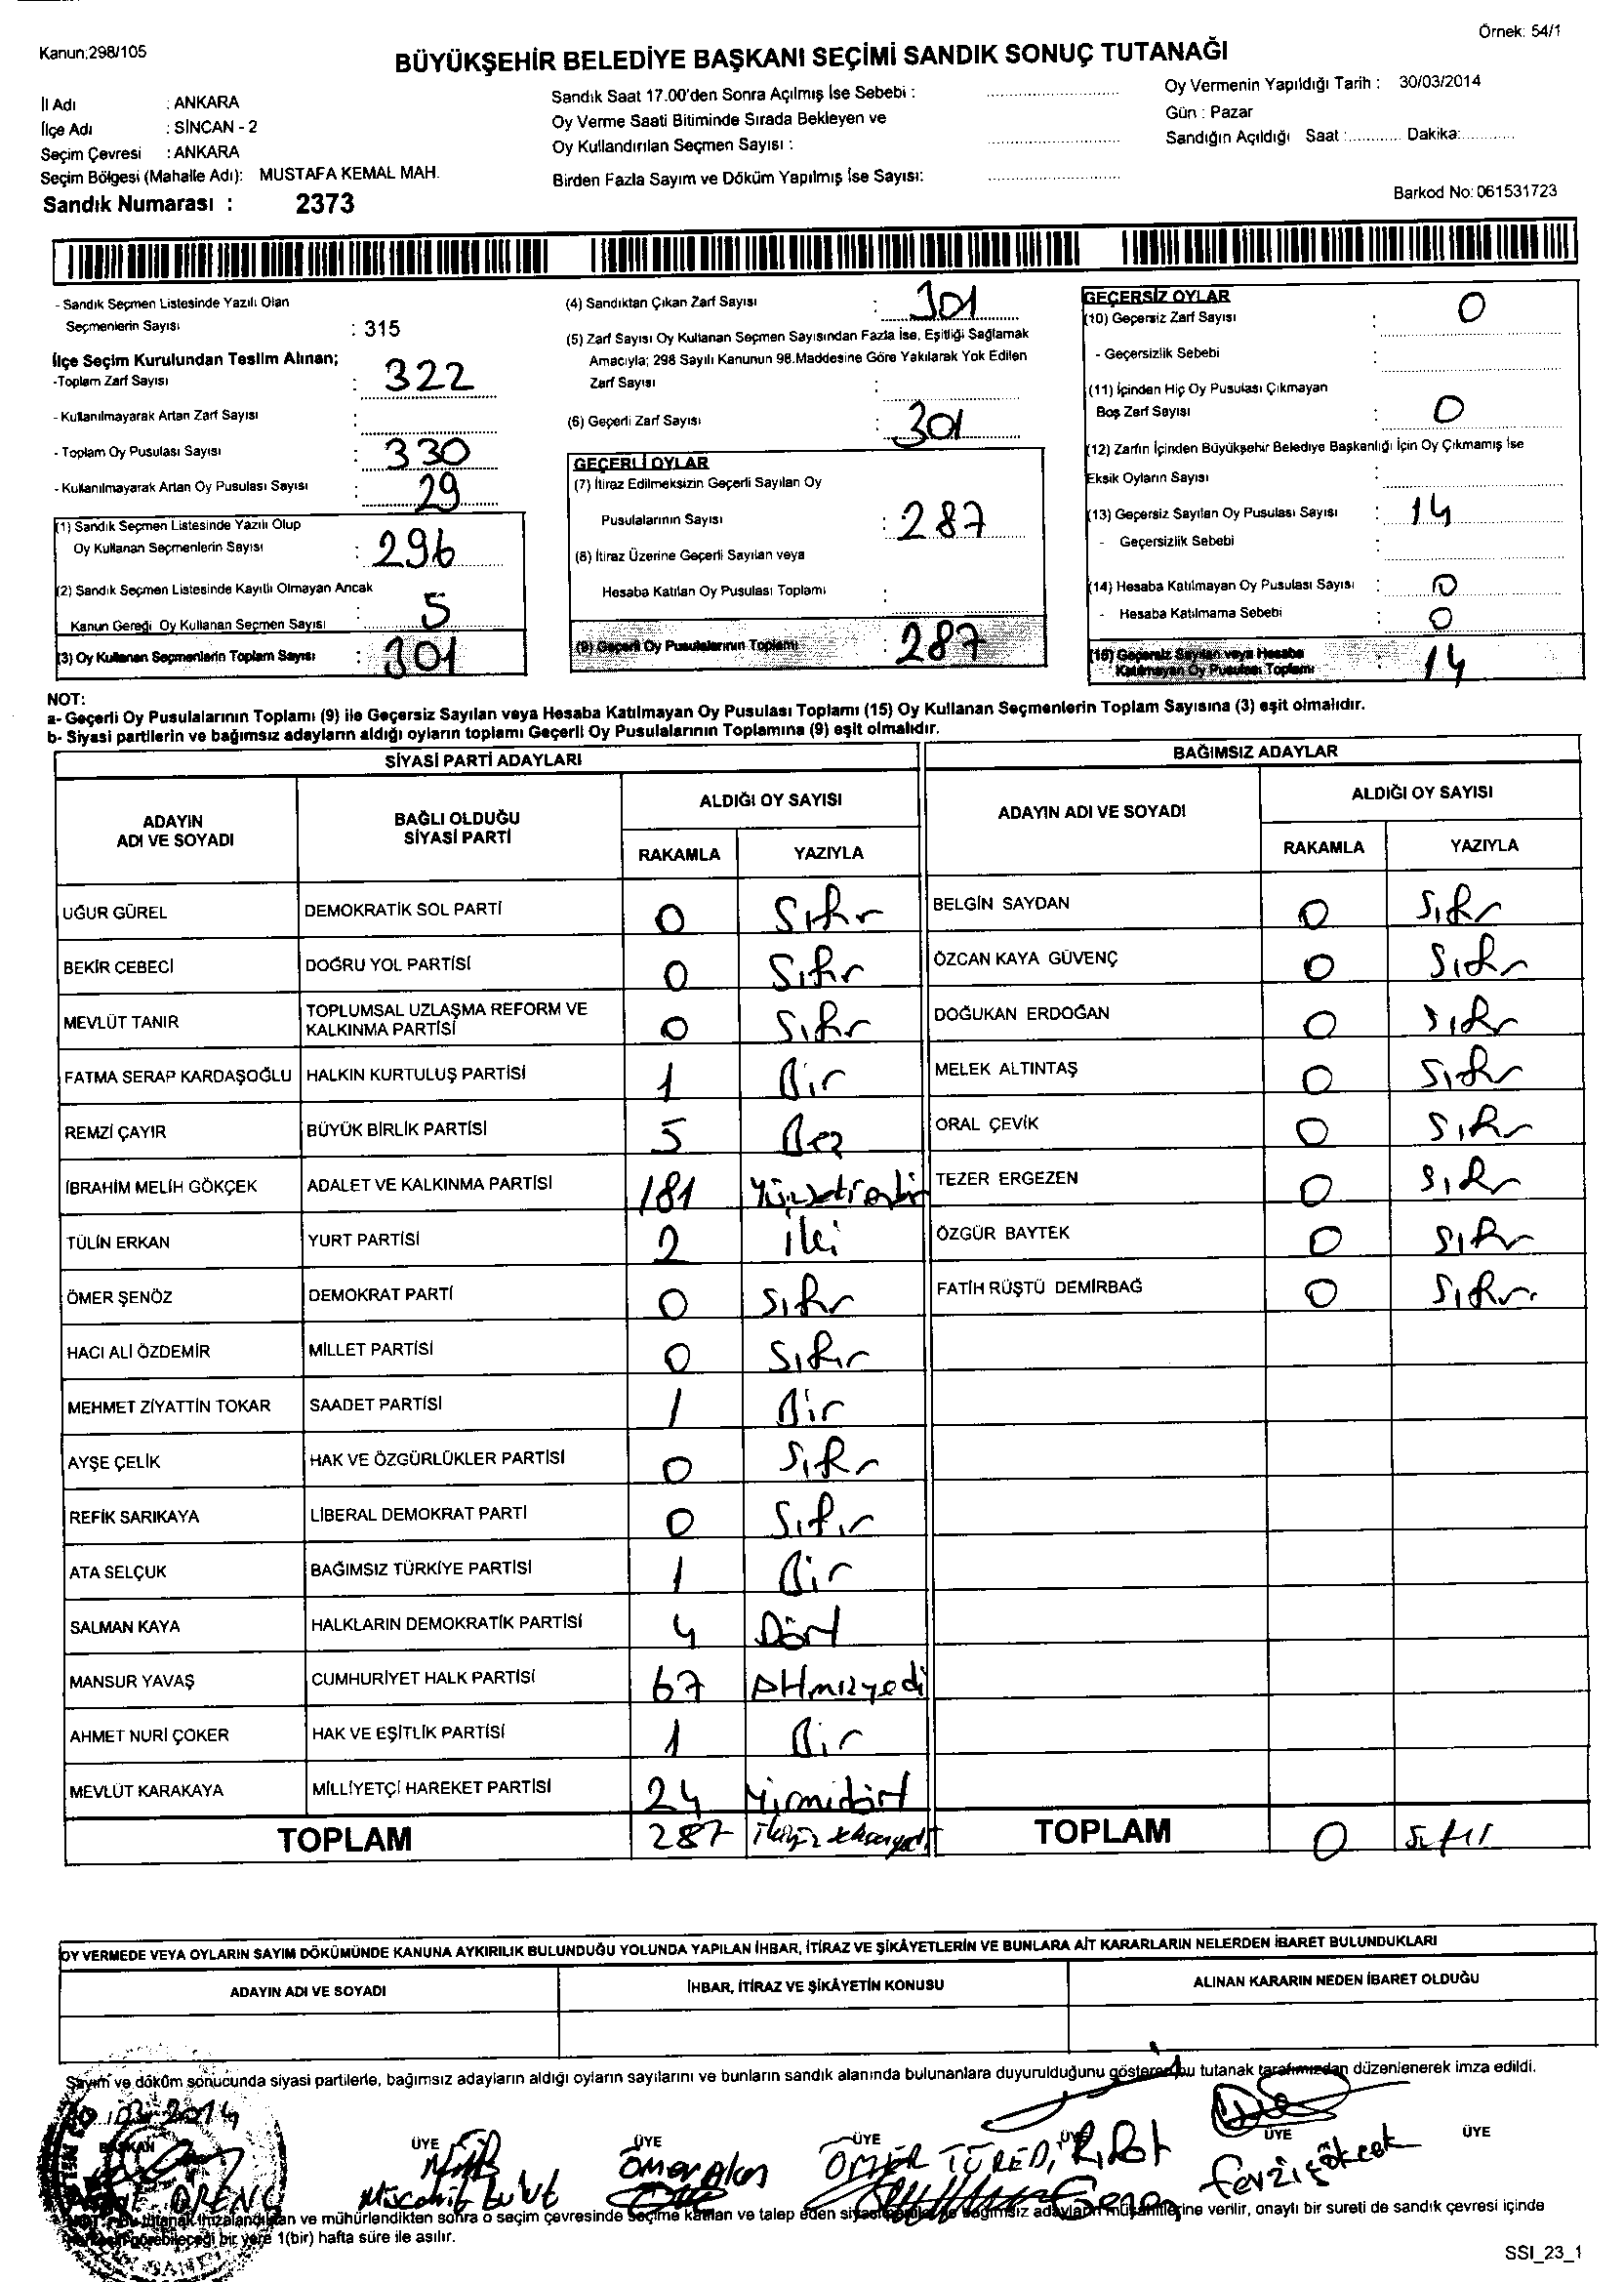 Örnek: 54/1
Kanun:298/105
BÜYÜKŞEHİR BELEDİYE BAŞKANI SEÇİMİ SANDIK SONUÇ TUTANAĞI
İl Adı : ANKARA
İlçe Adı : SİNCAN - 2
Seçim Çevresi : ANKARA
Seçim Bölgesi (Mahalle Adı): MUSTAFA KEMAL MAH.
Sandık Numarası : 2373
Sandık Saat 17.00'den Sonra Açılmış İse Sebebi :
Oy Verme Saati Bitiminde Sırada Bekleyen ve
Oy Kullandırılan Seçmen Sayısı :
Birden Fazla Sayım ve Döküm Yapılmış İse Sayısı:
Oy Vermenin Yapıldığı Tarih : 30/03/2014
Gün : Pazar
Sandığın Açıldığı Saat :............ Dakika:............
Barkod No: 061531723
- Sandık Seçmen Listesinde Yazılı Olan
Seçmenlerin Sayısı : 315
İlçe Seçim Kurulundan Teslim Alınan;
-Toplam Zarf Sayısı : 322
- Kullanılmayarak Artan Zarf Sayısı :
- Toplam Oy Pusulası Sayısı : 330
- Kullanılmayarak Artan Oy Pusulası Sayısı : 29
(1) Sandık Seçmen Listesinde Yazılı Olup
Oy Kullanan Seçmenlerin Sayısı : 296
(2) Sandık Seçmen Listesinde Kayıtlı Olmayan Ancak
Kanun Gereği Oy Kullanan Seçmen Sayısı : 5
(3) Oy Kullanan Seçmenlerin Toplam Sayısı : 301
(4) Sandıktan Çıkan Zarf Sayısı : 301
(5) Zarf Sayısı Oy Kullanan Seçmen Sayısından Fazla İse, Eşitliği Sağlamak
Amacıyla; 298 Sayılı Kanunun 98.Maddesine Göre Yakılarak Yok Edilen
Zarf Sayısı :
(6) Geçerli Zarf Sayısı : 301
GEÇERLİ OYLAR
(7) İtiraz Edilmeksizin Geçerli Sayılan Oy
Pusulalarının Sayısı : 287
(8) İtiraz Üzerine Geçerli Sayılan veya
Hesaba Katılan Oy Pusulası Toplamı :
(9) Geçerli Oy Pusulalarının Toplamı : 287
GEÇERSİZ OYLAR
(10) Geçersiz Zarf Sayısı : 0
- Geçersizlik Sebebi :
(11) İçinden Hiç Oy Pusulası Çıkmayan
Boş Zarf Sayısı : 0
(12) Zarfın İçinden Büyükşehir Belediye Başkanlığı İçin Oy Çıkmamış İse
Eksik Oyların Sayısı :
(13) Geçersiz Sayılan Oy Pusulası Sayısı : 14
- Geçersizlik Sebebi :
(14) Hesaba Katılmayan Oy Pusulası Sayısı : 0
- Hesaba Katılmama Sebebi : 0
(15) Geçersiz Sayılan veya Hesaba
Katılmayan Oy Pusulası Toplamı : 14
NOT:
a- Geçerli Oy Pusulalarının Toplamı (9) ile Geçersiz Sayılan veya Hesaba Katılmayan Oy Pusulası Toplamı (15) Oy Kullanan Seçmenlerin Toplam Sayısına (3) eşit olmalıdır.
b- Siyasi partilerin ve bağımsız adayların aldığı oyların toplamı Geçerli Oy Pusulalarının Toplamına (9) eşit olmalıdır.
SİYASİ PARTİ ADAYLARI
ADAYIN ADI VE SOYADI BAĞLI OLDUĞU SİYASİ PARTİ ALDIĞI OY SAYISI
RAKAMLA YAZIYLA
UĞUR GÜREL DEMOKRATİK SOL PARTİ 0 Sıfır
BEKİR CEBECİ DOĞRU YOL PARTİSİ 0 Sıfır
MEVLÜT TANIR TOPLUMSAL UZLAŞMA REFORM VE KALKINMA PARTİSİ 0 Sıfır
FATMA SERAP KARDAŞOĞLU HALKIN KURTULUŞ PARTİSİ 1 Bir
REMZİ ÇAYIR BÜYÜK BİRLİK PARTİSİ 5 Beş
İBRAHİM MELİH GÖKÇEK ADALET VE KALKINMA PARTİSİ 181
TÜLİN ERKAN YURT PARTİSİ 2 iki
ÖMER ŞENÖZ DEMOKRAT PARTİ 0 Sıfır
HACI ALİ ÖZDEMİR MİLLET PARTİSİ 0 Sıfır
MEHMET ZİYATTİN TOKAR SAADET PARTİSİ 1 Bir
AYŞE ÇELİK HAK VE ÖZGÜRLÜKLER PARTİSİ 0 Sıfır
REFİK SARIKAYA LİBERAL DEMOKRAT PARTİ 0 Sıfır
ATA SELÇUK BAĞIMSIZ TÜRKİYE PARTİSİ 1 Bir
SALMAN KAYA HALKLARIN DEMOKRATİK PARTİSİ 4 Dört
MANSUR YAVAŞ CUMHURİYET HALK PARTİSİ 67 Altmışyedi
AHMET NURİ ÇOKER HAK VE EŞİTLİK PARTİSİ 1 Bir
MEVLÜT KARAKAYA MİLLİYETÇİ HAREKET PARTİSİ 24 Yirmidört
TOPLAM 287
BAĞIMSIZ ADAYLAR
ADAYIN ADI VE SOYADI ALDIĞI OY SAYISI
RAKAMLA YAZIYLA
BELGİN SAYDAN 0 Sıfır
ÖZCAN KAYA GÜVENÇ 0 Sıfır
DOĞUKAN ERDOĞAN 0 Sıfır
MELEK ALTINTAŞ 0 Sıfır
ORAL ÇEVİK 0 Sıfır
TEZER ERGEZEN 0 Sıfır
ÖZGÜR BAYTEK 0 Sıfır
FATİH RÜŞTÜ DEMİRBAĞ 0 Sıfır
TOPLAM 0 Sıfır
OY VERMEDE VEYA OYLARIN SAYIM DÖKÜMÜNDE KANUNA AYKIRILIK BULUNDUĞU YOLUNDA YAPILAN İHBAR, İTİRAZ VE ŞİKÂYETLERİN VE BUNLARA AİT KARARLARIN NELERDEN İBARET BULUNDUKLARI
ADAYIN ADI VE SOYADI İHBAR, İTİRAZ VE ŞİKÂYETİN KONUSU ALINAN KARARIN NEDEN İBARET OLDUĞU
Sayım ve döküm sonucunda siyasi partilerle, bağımsız adayların aldığı oyların sayılarını ve bunların sandık alanında bulunanlara duyurulduğunu gösteren bu tutanak tarafımızdan düzenlenerek imza edildi.
BAŞKAN ÜYE ÜYE ÜYE ÜYE ÜYE ÜYE
Mücahit Bulut ÖMER TÜREDİ Fevzi Gökcek
NOT : Bu tutanak imzalandıktan ve mühürlendikten sonra o seçim çevresinde seçime katılan ve talep eden siyasi bağımsız adayların müşahitlerine verilir, onaylı bir sureti de sandık çevresi içinde
görebileceği bir yere 1(bir) hafta süre ile asılır.
SSI_23_1